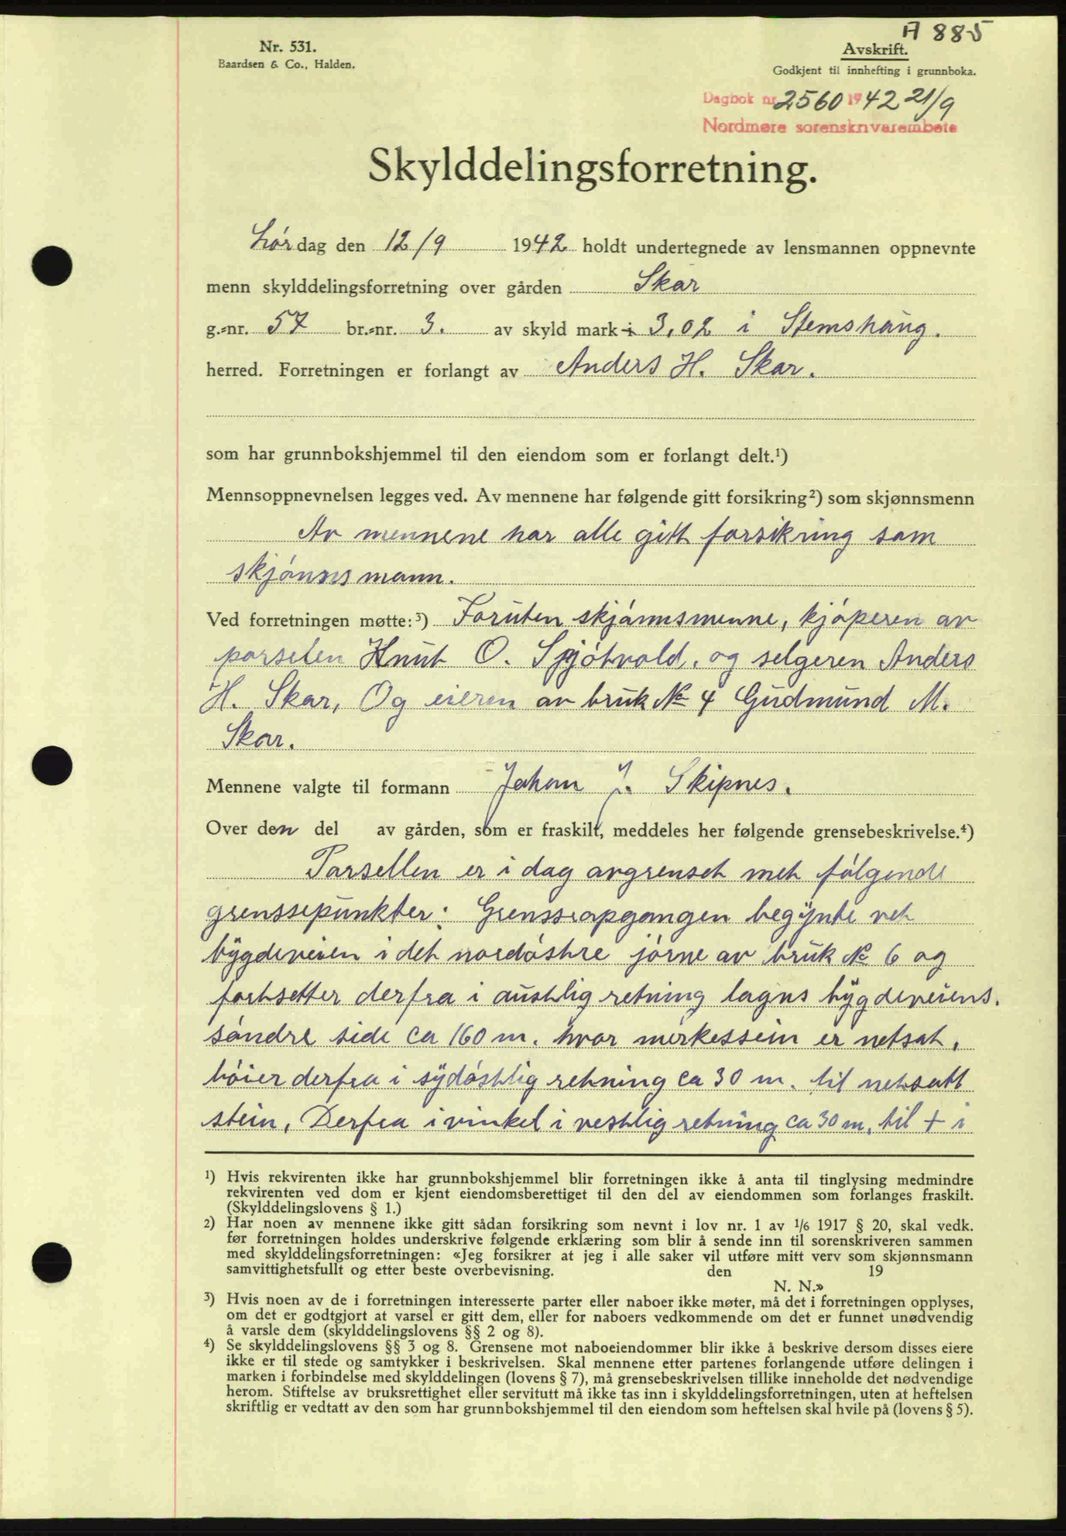 A 885
Nr. 531.
Baardsen & Co., Halden.
Avskrift.
Godkjent til innhefting i grunnboka.
Dagbok nr. 2560 1942 21/9
Nordmøre sorenskriverembete
Skylddelingsforretning.
Lørdag den 12/9 1942 holdt undertegnede av lensmannen oppnevnte
menn skylddelingsforretning over gården Skar
g.-nr. 57 br.-nr. 3. av skyld mark i 3,02 i Stemshaug.
herred. Forretningen er forlangt av Anders H. Skar.
som har grunnbokshjemmel til den eiendom som er forlangt delt.¹)
Mennsoppnevnelsen legges ved. Av mennene har følgende gitt forsikring²) som skjønnsmenn
Av mennene har alle gitt forsikring som
skjønnsmann.
Ved forretningen møtte:³) Foruten skjønnsmenne, kjøperen av
parselen Knut O. Spjøtvold, og selgeren Anders
H. Skar, Og eieren av bruk № 4 Gudmund M.
Skar.
Mennene valgte til formann Johan J. Skipnes.
Over den del av gården, som er fraskilt, meddeles her følgende grensebeskrivelse.⁴)
Parsellen er i dag avgrenset met følgende
grenssepunkter: Grenssopgangen begynte vet
bygdeveien i det nordøstre jørne av bruk № 6 og
fortsetter derfra i austlig retning lagns bygdeveiens.
søndre side ca 160 m. hvor merkesstein er netsat,
bøier derfra i sydøstlig retning ca 30 m. til netsatt
stein, Derfra i vinkel i vestlig retning ca 30 m, til + i
¹) Hvis rekvirenten ikke har grunnbokshjemmel blir forretningen ikke å anta til tinglysing medmindre
rekvirenten ved dom er kjent eiendomsberettiget til den del av eiendommen som forlanges fraskilt.
(Skylddelingslovens § 1.)
²) Har noen av mennene ikke gitt sådan forsikring som nevnt i lov nr. 1 av 1/6 1917 § 20, skal vedk.
før forretningen holdes underskrive følgende erklæring som blir å sende inn til sorenskriveren sammen
med skylddelingsforretningen: «Jeg forsikrer at jeg i alle saker vil utføre mitt verv som skjønnsmann
samvittighetsfullt og etter beste overbevisning. den 19
N. N.»
³) Hvis noen av de i forretningen interesserte parter eller naboer ikke møter, må det i forretningen opplyses,
om det er godtgjort at varsel er gitt dem, eller for naboers vedkommende om det er funnet unødvendig
å varsle dem (skylddelingslovens §§ 2 og 8).
⁴) Se skylddelingslovens §§ 3 og 8. Grensene mot naboeiendommer blir ikke å beskrive dersom disses eiere
ikke er til stede og samtykker i beskrivelsen. Skal mennene etter partenes forlangende utføre delingen i
marken i forbindelse med skylddelingen (lovens § 7), må grensebeskrivelsen tillike inneholde det nødvendige
herom. Stiftelse av bruksrettighet eller servitutt må ikke tas inn i skylddelingsforretningen, uten at heftelsen
skriftlig er vedtatt av den som har grunnbokshjemmel til den eiendom som heftelsen skal hvile på (lovens § 5).